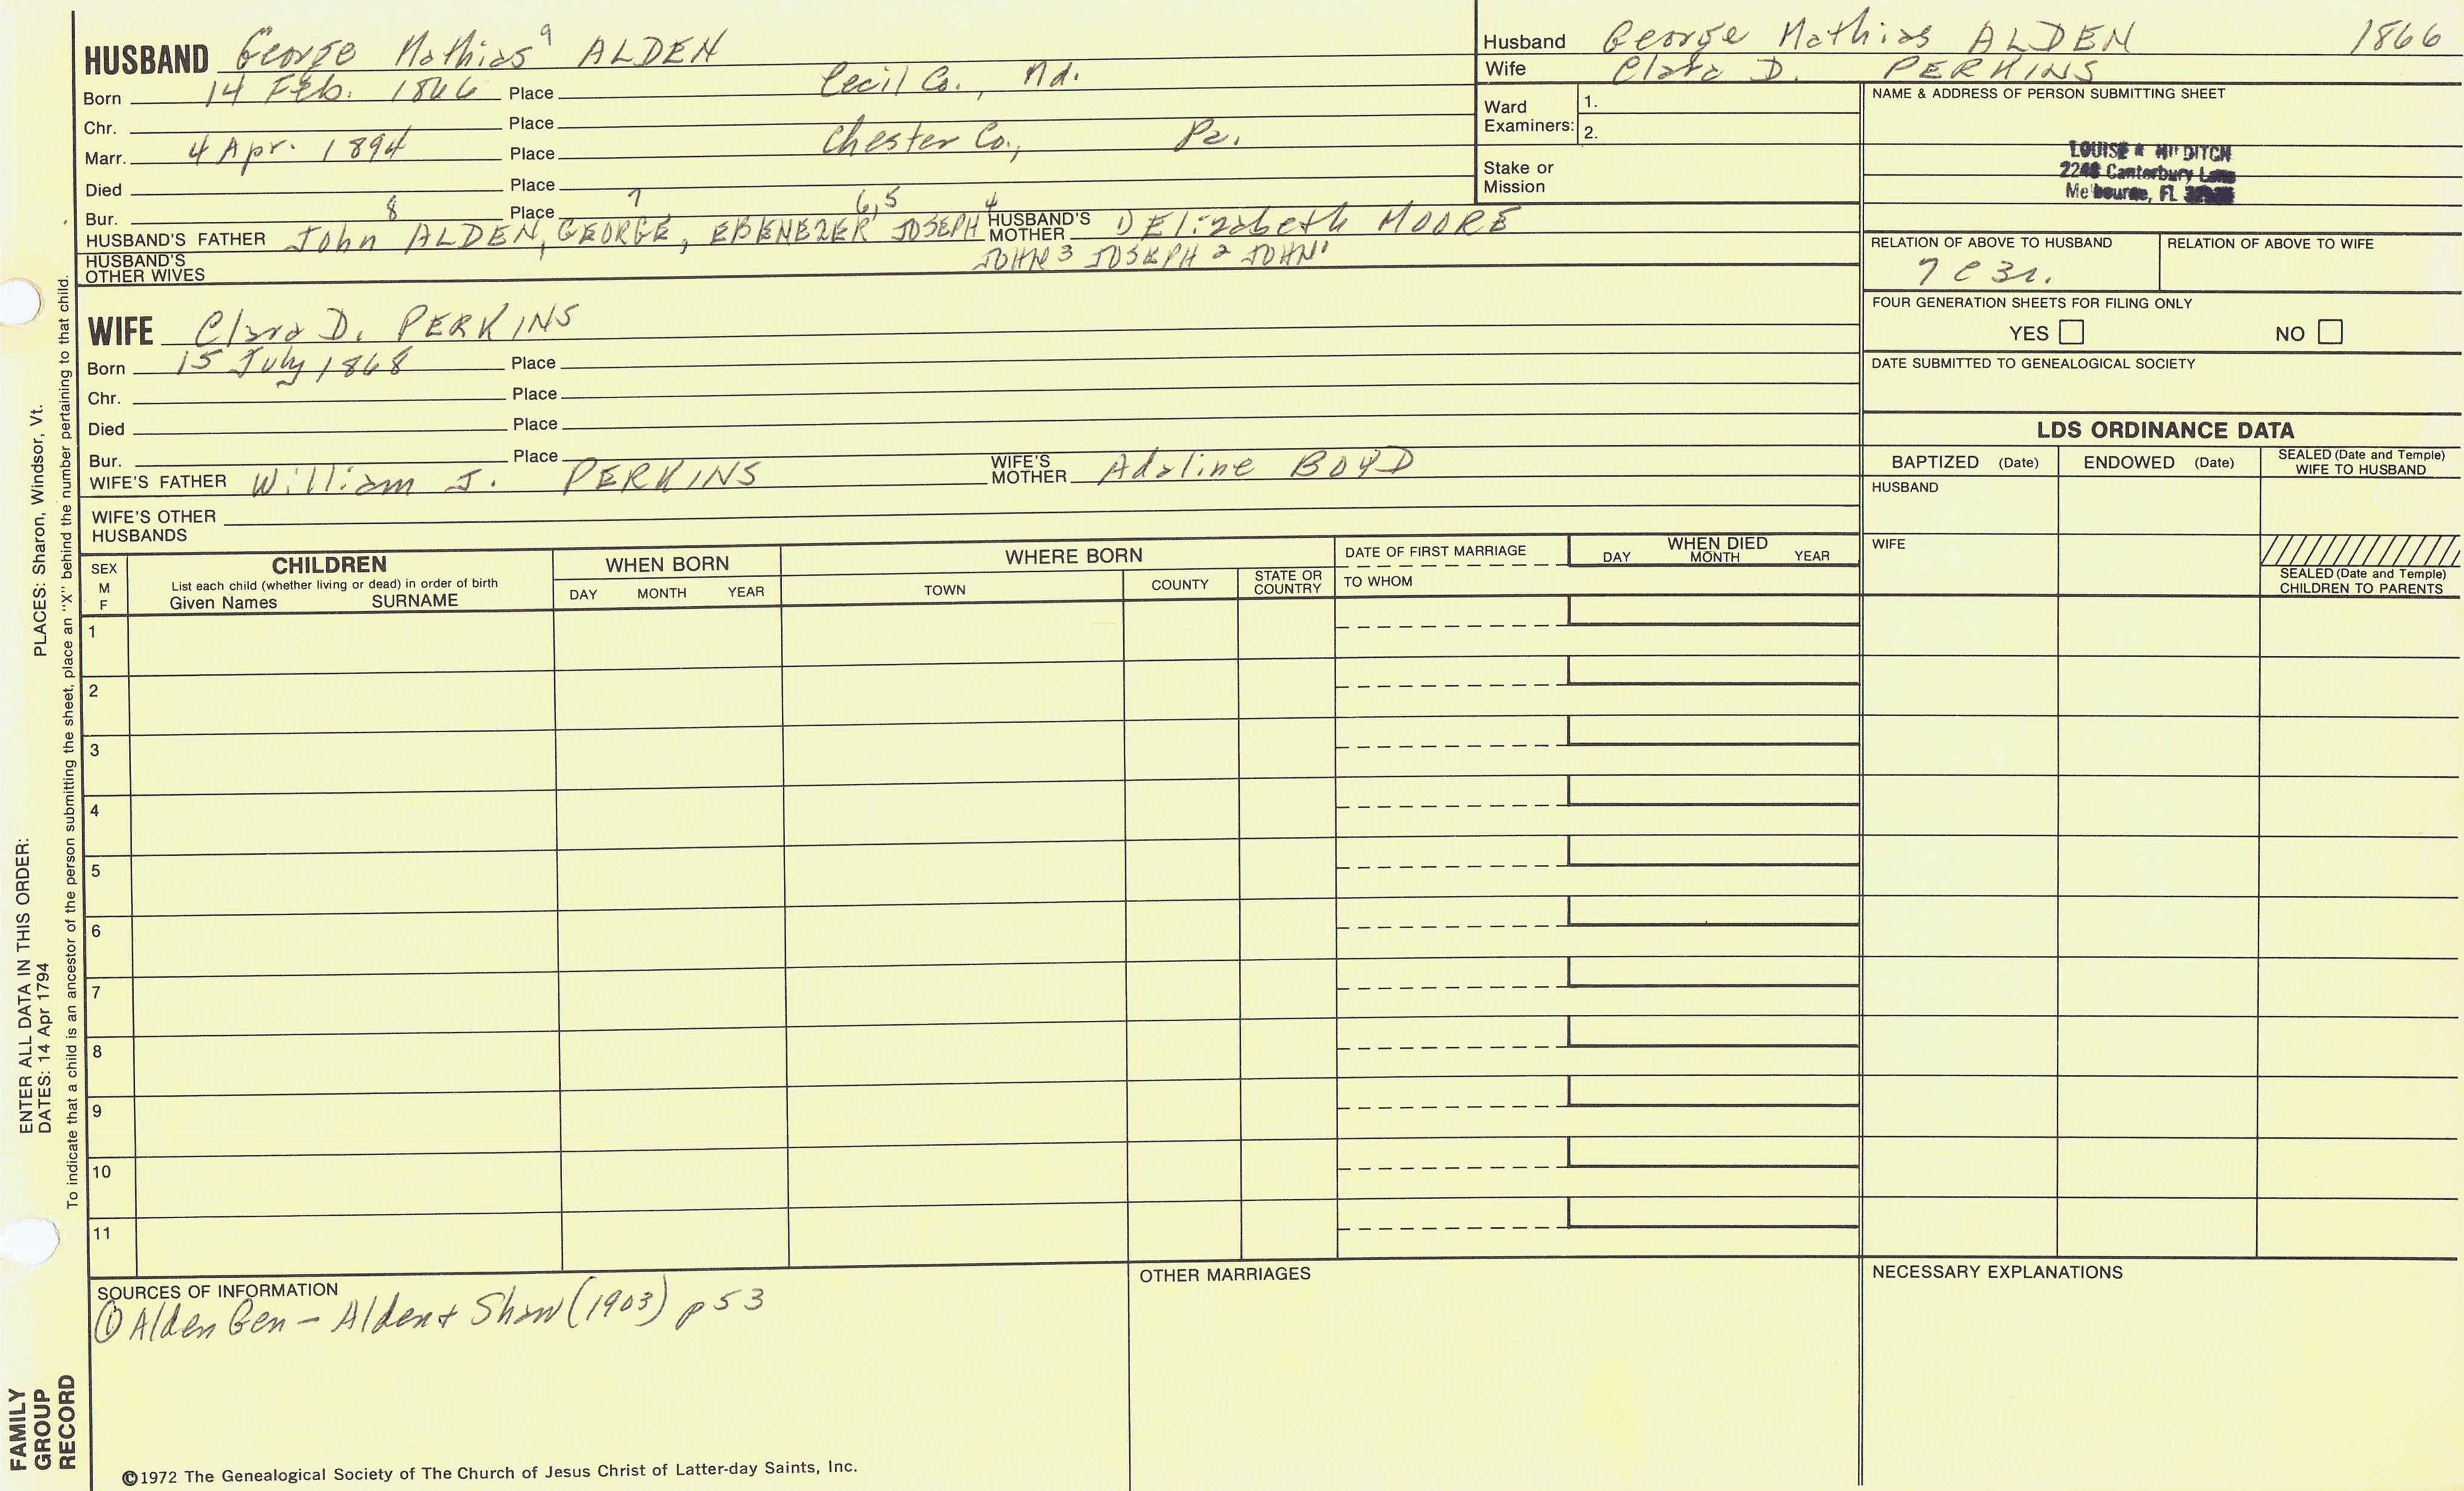 HUSBAND George Mathias 9 ALDEN
Born 14 Feb. 1866 Place Cecil Co., Md.
Chr. Place
Marr. 4 Apr. 1894 Place Chester Co., Pa.
Died Place
Bur. Place
HUSBAND'S FATHER John ALDEN 8, GEORGE 7, EBENEZER 6,5 JOSEPH 4 HUSBAND'S MOTHER DElizabeth MOORE
JOHN 3 JOSEPH 2 JOHN 1
HUSBAND'S OTHER WIVES
WIFE Clara D. PERKINS
Born 15 July 1868 Place
Chr. Place
Died Place
Bur. Place
WIFE'S FATHER William J. PERKINS WIFE'S MOTHER Adaline BOYD
WIFE'S OTHER HUSBANDS
Husband George Mathias ALDEN 1866
Wife Clara D. PERKINS
Ward Examiners: 1.
2.
Stake or Mission
NAME & ADDRESS OF PERSON SUBMITTING SHEET
LOUISE
Canterbury Lane
Melbourne, FL
RELATION OF ABOVE TO HUSBAND RELATION OF ABOVE TO WIFE
7 C 3r.
FOUR GENERATION SHEETS FOR FILING ONLY
YES NO
DATE SUBMITTED TO GENEALOGICAL SOCIETY
LDS ORDINANCE DATA
BAPTIZED (Date) ENDOWED (Date) SEALED (Date and Temple) WIFE TO HUSBAND
HUSBAND
WIFE
SEALED (Date and Temple) CHILDREN TO PARENTS
SEX M F
CHILDREN
List each child (whether living or dead) in order of birth
Given Names SURNAME
WHEN BORN
DAY MONTH YEAR
WHERE BORN
TOWN COUNTY STATE OR COUNTRY
DATE OF FIRST MARRIAGE
TO WHOM
WHEN DIED
DAY MONTH YEAR
1
2
3
4
5
6
7
8
9
10
11
SOURCES OF INFORMATION
① Alden Gen - Alden + Shaw (1903) p 53
OTHER MARRIAGES
NECESSARY EXPLANATIONS
©1972 The Genealogical Society of The Church of Jesus Christ of Latter-day Saints, Inc.
ENTER ALL DATA IN THIS ORDER:
DATES: 14 Apr 1794 PLACES: Sharon, Windsor, Vt.
To indicate that a child is an ancestor of the person submitting the sheet, place an "X" behind the number pertaining to that child.
FAMILY GROUP RECORD